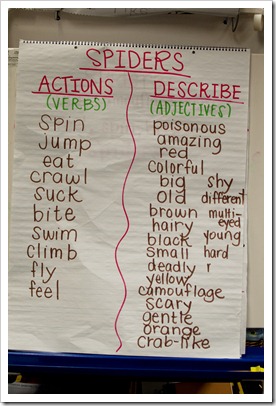 SPIDERS
ACTIONS
(VERBS)
spin
Jump
eat
crawl
suck
bite
swim
climb
fly
feel
DESCRIBE
(ADJECTIVES)
poisonous
amazing
red
colorful
big shy
old different
brown multi-
hairy eyed
black young
small hard
deadly r
yellow
camouflage
scary
gentle
orange
crab-like